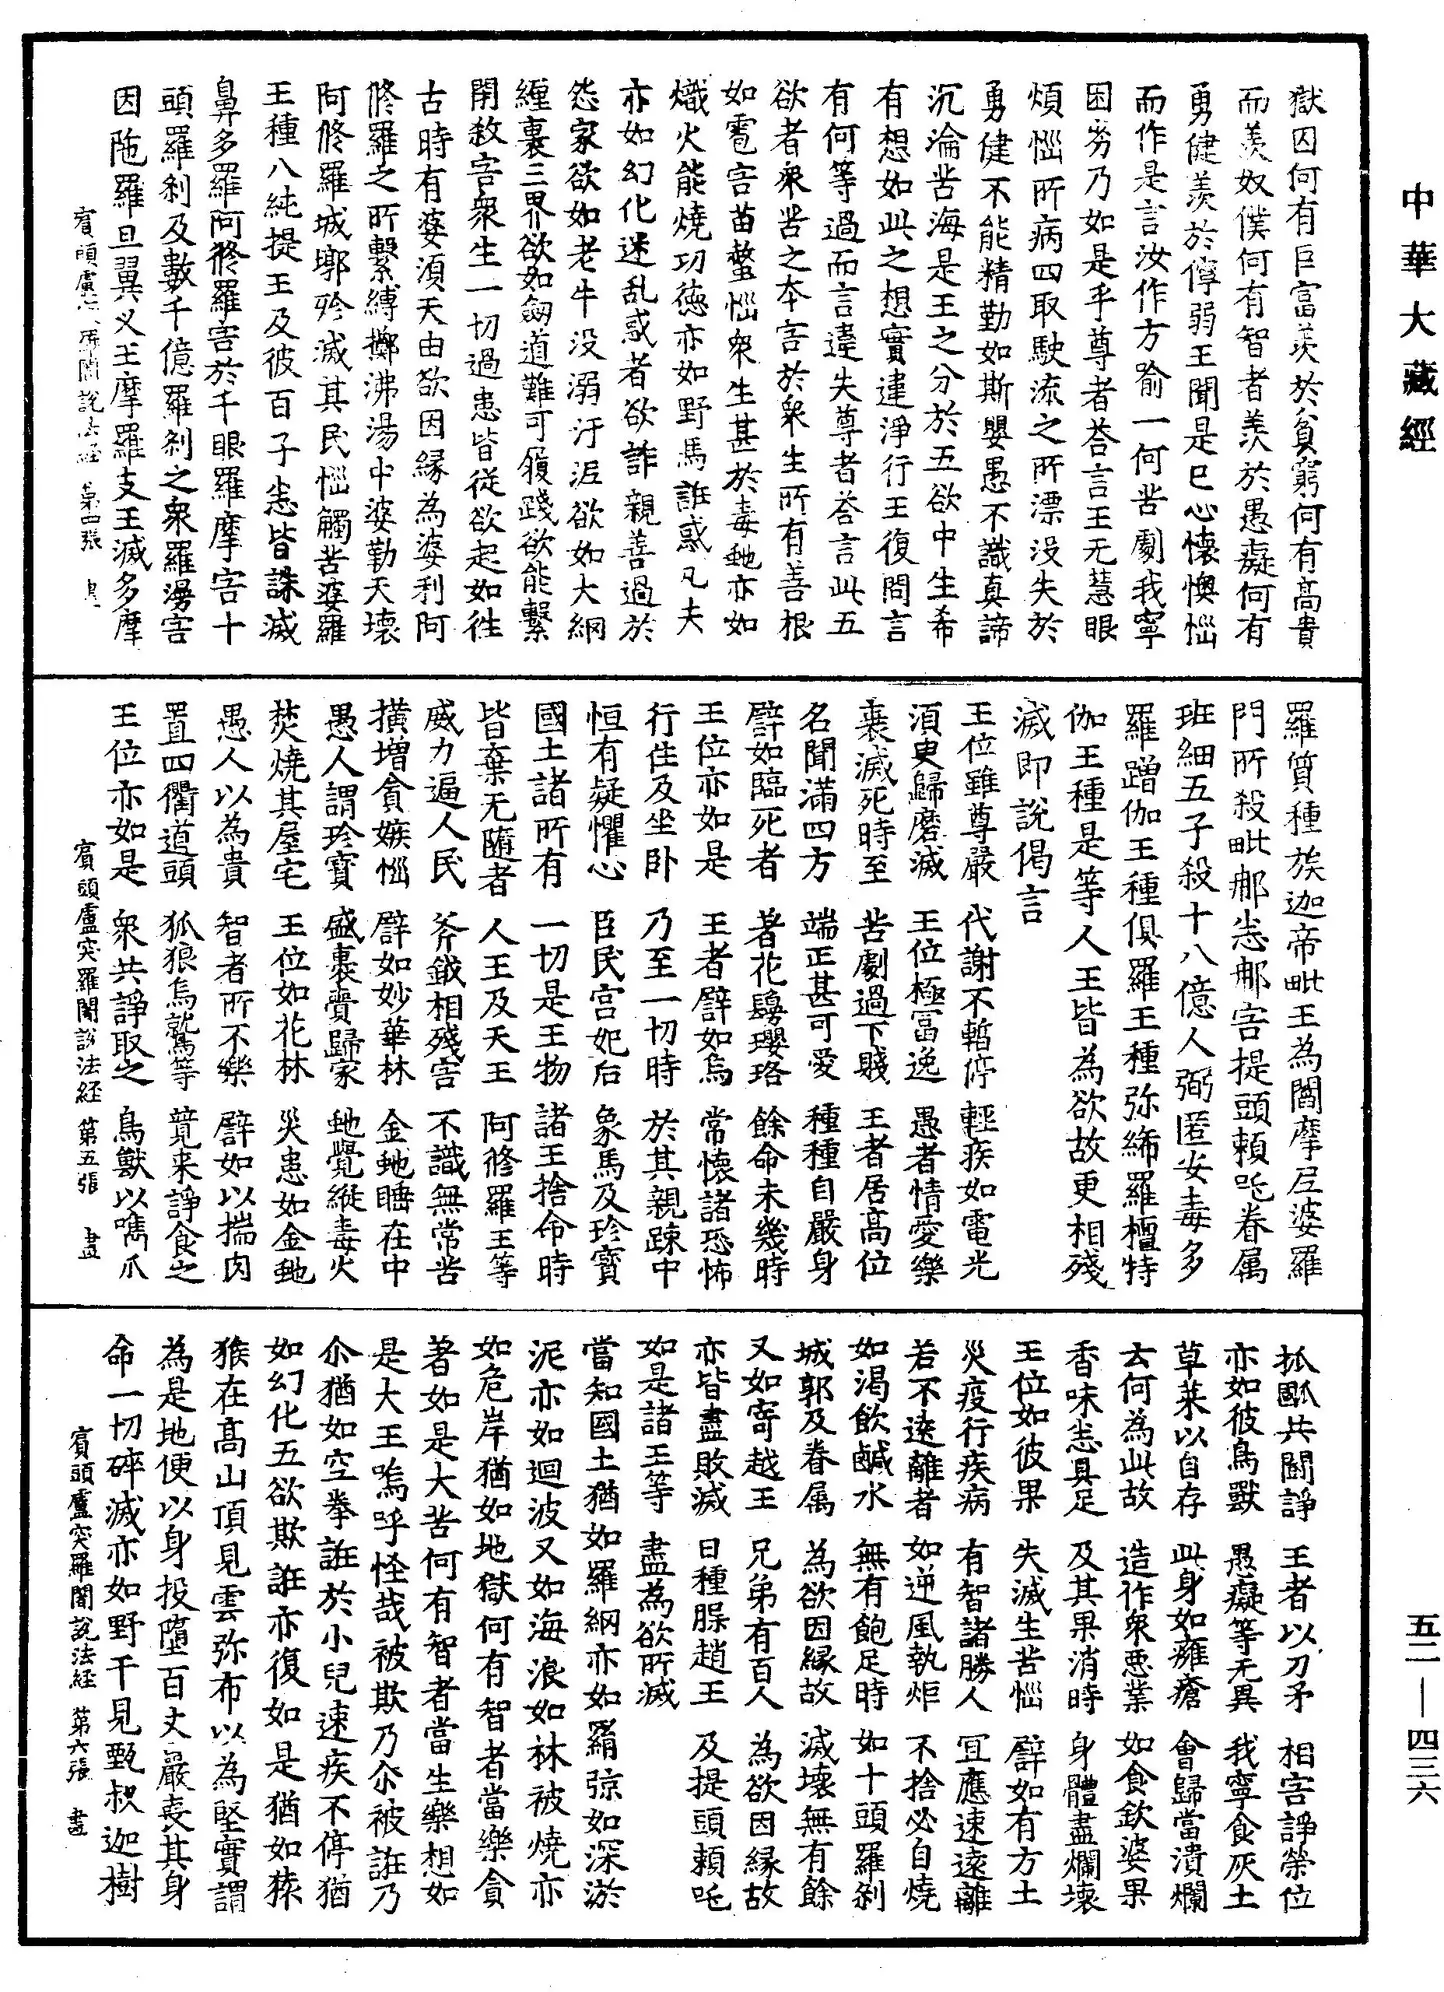 中華大藏經
獄囚何有巨富羨於貧窮何有高貴
而羨奴僕何有智者羨於愚癡何有
勇健羨於儜弱王聞是已心懷懊惱
而作是言汝作方喻一何苦劇我寧
困劣乃如是乎尊者荅言王无慧眼
煩惱所病四取駛流之所漂没失於
勇健不能精勤如斯嬰愚不識真諦
沉淪苦海是王之分於五欲中生希
有想如此之想實違淨行王復問言
有何等過而言違失尊者荅言此五
欲者衆苦之本害於衆生所有善根
如雹害苗螫惱衆生甚於毒虵亦如
熾火能燒功德亦如野馬誑惑凡夫
亦如幻化迷乱惑者欲詐親善過於
怨家欲如老牛没溺汙泥欲如大網
纏裏三界欲如劒道難可履踐欲能繫
閇殺害衆生一切過患皆從欲起如往
古時有婆須天由欲因緣為婆利阿
脩羅之所繫縛擲沸湯中婆勤天壞
阿脩羅城墎殄滅其民惱觸苦婆羅
王種八純提王及彼百子悉皆誅滅
鼻多羅阿脩羅害於千眼羅摩害十
頭羅刹及數千億羅刹之衆羅湯害
因陁羅旦翼义王摩羅支王滅多摩
賓頭盧突羅闍說法經 第四張
羅質種族迦帝毗王為閻摩㞐婆羅
門所殺毗郍悉郍害提頭頼吒眷属
班細五子殺十八億人弼匿安毒多
羅蹭伽王種俱羅王種弥絺羅檀特
伽王種是等人王皆為欲故更相殘
滅即說偈言
王位雖尊嚴 代謝不暫停 輕疾如電光
須臾歸磨滅 王位極冨逸 愚者情愛樂
衰滅死時至 苦劇過下賤 王者居高位
名聞滿四方 端正甚可愛 種種自嚴身
譬如臨死者 著花鬘瓔珞 餘命未幾時
王位亦如是 王者譬如烏 常懷諸恐怖
行住及坐卧 乃至一切時 於其親踈中
恒有疑懼心 臣民宫妃后 象馬及珍寳
國土諸所有 一切是王物 諸王捨命時
皆棄无隨者 人王及天王 阿脩羅王等
威力逼人民 斧鉞相殘害 不識無常苦
横増貪嫉惱 譬如妙華林 金虵睡在中
愚人謂珍寳 盛裹賷歸家 虵覺縱毒火
焚燒其屋宅 王位如花林 災患如金虵
愚人以為貴 智者所不樂 譬如以揣肉
置四衢道頭 狐狼烏鷲等 競来諍食之
王位亦如是 衆共諍取之 鳥獸以嘴爪
賓頭盧突羅闍說法經 第五張 畫
㧓𭠘共鬪諍 王者以刀矛 相害諍榮位
亦如彼鳥獸 愚癡等无異 我寧食灰土
草菜以自存 此身如癰瘡 會歸當潰爛
云何為此故 造作衆惡業 如食欽婆果
香味悉具足 及其果消時 身體盡爛壞
王位如彼果 失滅生苦惱 譬如有方土
災疫行疾病 有智諸勝人 冝應速遠離
若不遠離者 如逆風執炬 不捨必自燒
如渴飲鹹水 無有飽足時 如十頭羅刹
城郭及眷属 為欲因緣故 滅壞無有餘
又如寄越王 兄弟有百人 為欲因緣故
亦皆盡敗滅 日種腂趙王 及提頭頼吒
如是諸王等 盡為欲所滅
當知國土猶如羅網亦如羂弶如深淤
泥亦如迴波又如海浪如林被燒亦
如危岸猶如地獄何有智者當樂貪
著如是大苦何有智者當生樂想如
是大王嗚呼怪哉被欺乃尒被誑乃
尒猶如空拳誑於小兒速疾不停猶
如幻化五欲欺誑亦復如是猶如猨
猴在高山頂見雲弥布以為堅實謂
為是地便以身投墮百丈巖喪其身
命一切碎滅亦如野干見甄叔迦樹
賓頭盧突羅闍說法經 第六張 畫
五二—四三六